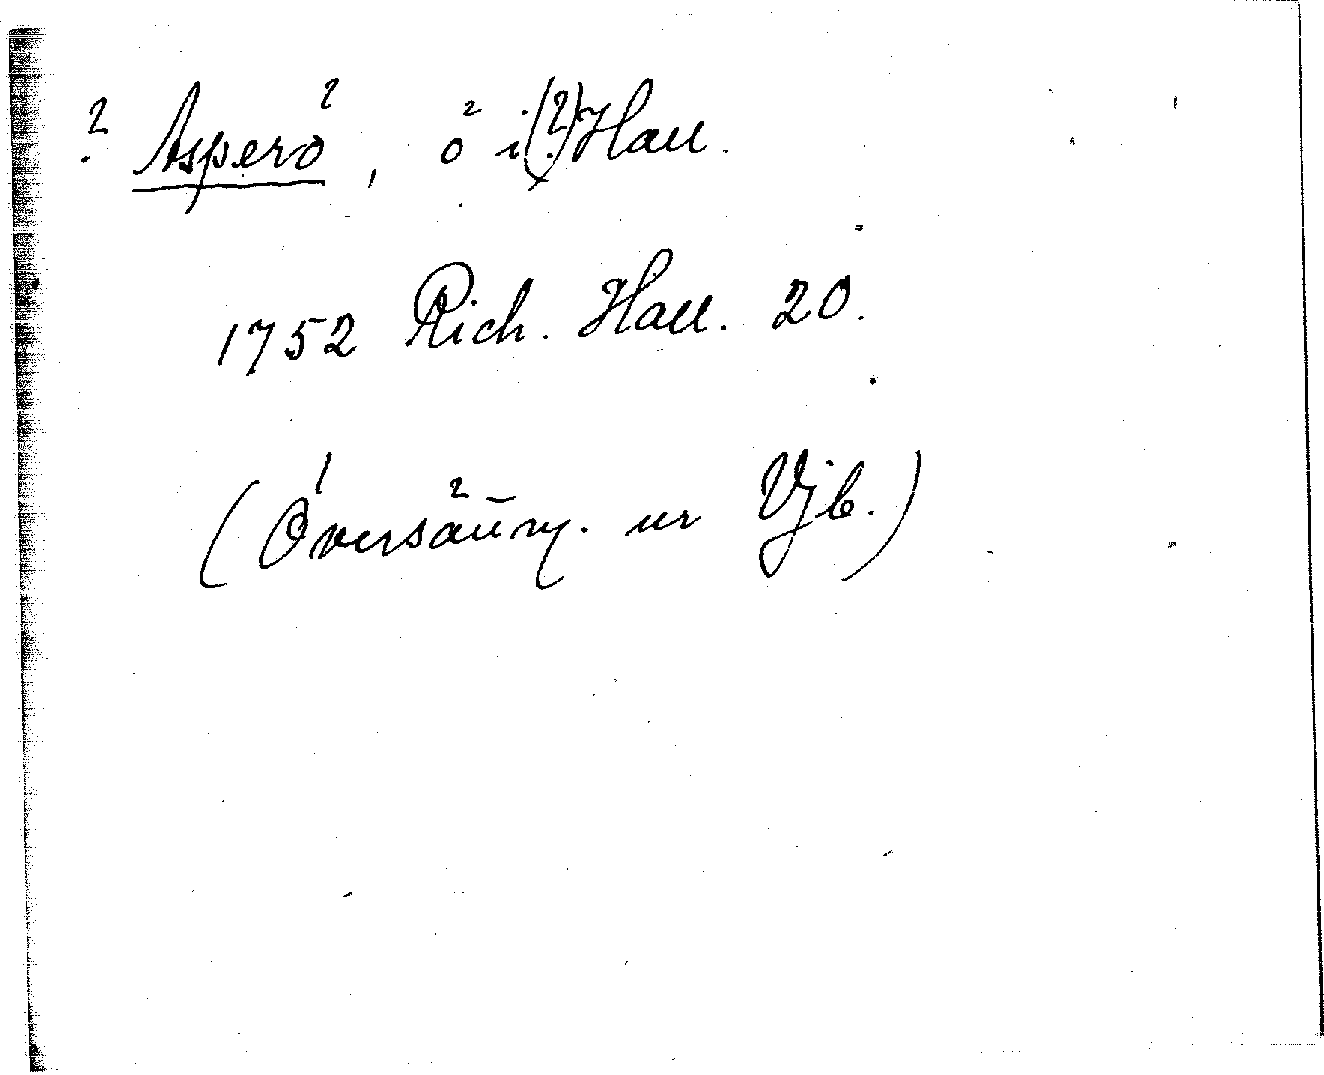 ? Asperö, ö i (?) Hall.
1752 Rich. Hall. 20.
(Översämn. ur Vjb.)